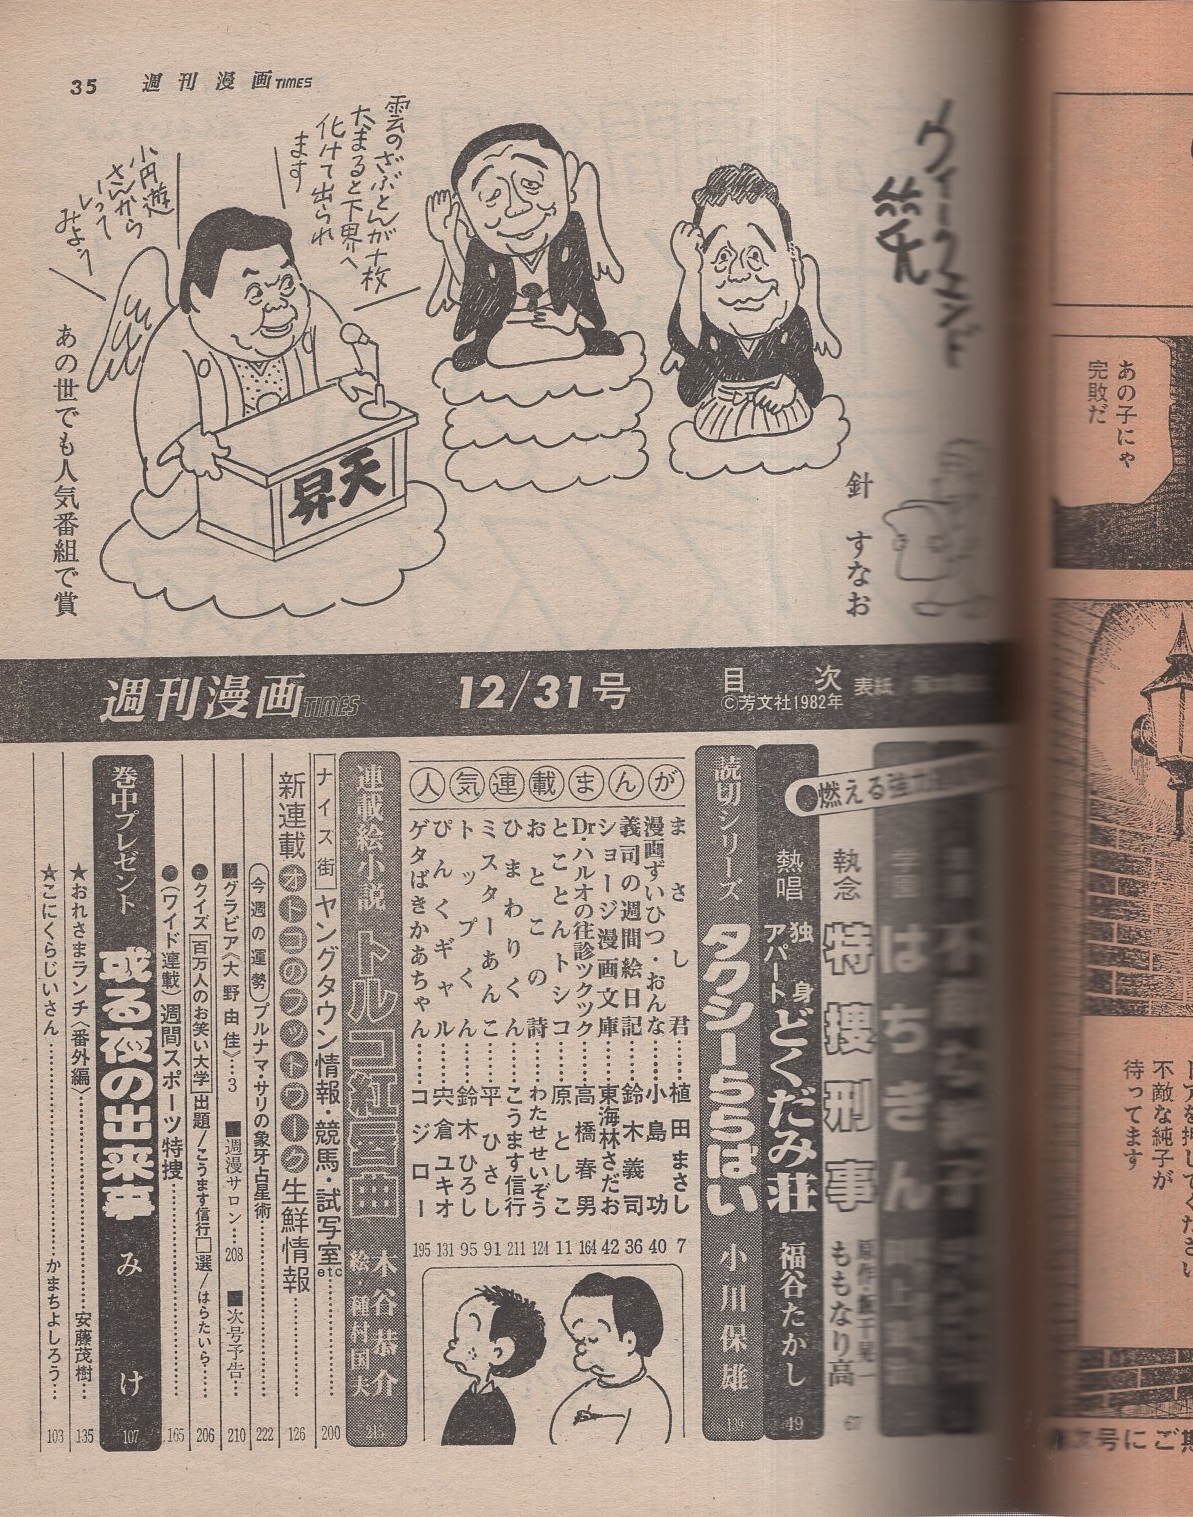 35 週刊漫画TIMES
ウィークエンド
笑
針 すなお
雲のざぶとんが十枚
たまると下界へ
化けて出られ
ます
小円遊
さんから
いって
みよう
昇天
あの世でも人気番組で賞
週刊漫画TIMES 12/31号 目次
©芳文社1982年
表紙
燃える強力
はちきん
執念 特捜刑事 ももなり高 67
熱唱 独身アパート どくだみ荘 福谷たかし 49
読切シリーズ タクシーららばい 小川保雄
人気連載まんが
まさし君……植田まさし 7
漫画ずいひつ・おんな……小島功 40
義司の週間絵日記……鈴木義司 36
ショージ漫画文庫……東海林さだお 42
Dr・ハルオの往診ツクツク……高橋春男 164
とことんトシコ……原としこ 11
おとこの詩……わたせせいぞう 124
ひまわりくん……こうます信行 211
ミスターあんこ……平ひさし 91
トップくん……鈴木ひろし 95
ぴんくギャル……宍倉ユキオ 131
ゲタばきかあちゃん……コジロー 195
連載絵小説 トルコ紅唇曲 木谷恭介 絵・種村国夫
ナイス街 ヤングタウン情報・競馬・試写室etc…… 200
新連載 オトコのフットワーク生鮮情報…… 126
今週の運勢 プルナマ・サリの象牙占星術…… 222
■グラビア〈大野由佳〉…3 ■週漫サロン…208 ■次号予告… 210
●クイズ 百万人のお笑い大学 出題/こうます信行 選/はらたいら…… 206
●〈ワイド連載〉週間スポーツ特捜…… 165
巻中プレゼント 或る夜の出来事 みけ 107
★おれさまランチ〈番外編〉……安藤茂樹… 135
★こにくらじいさん……かまちよしろう… 103
あの子にゃ
完敗だ
不敵な純子が
待ってます